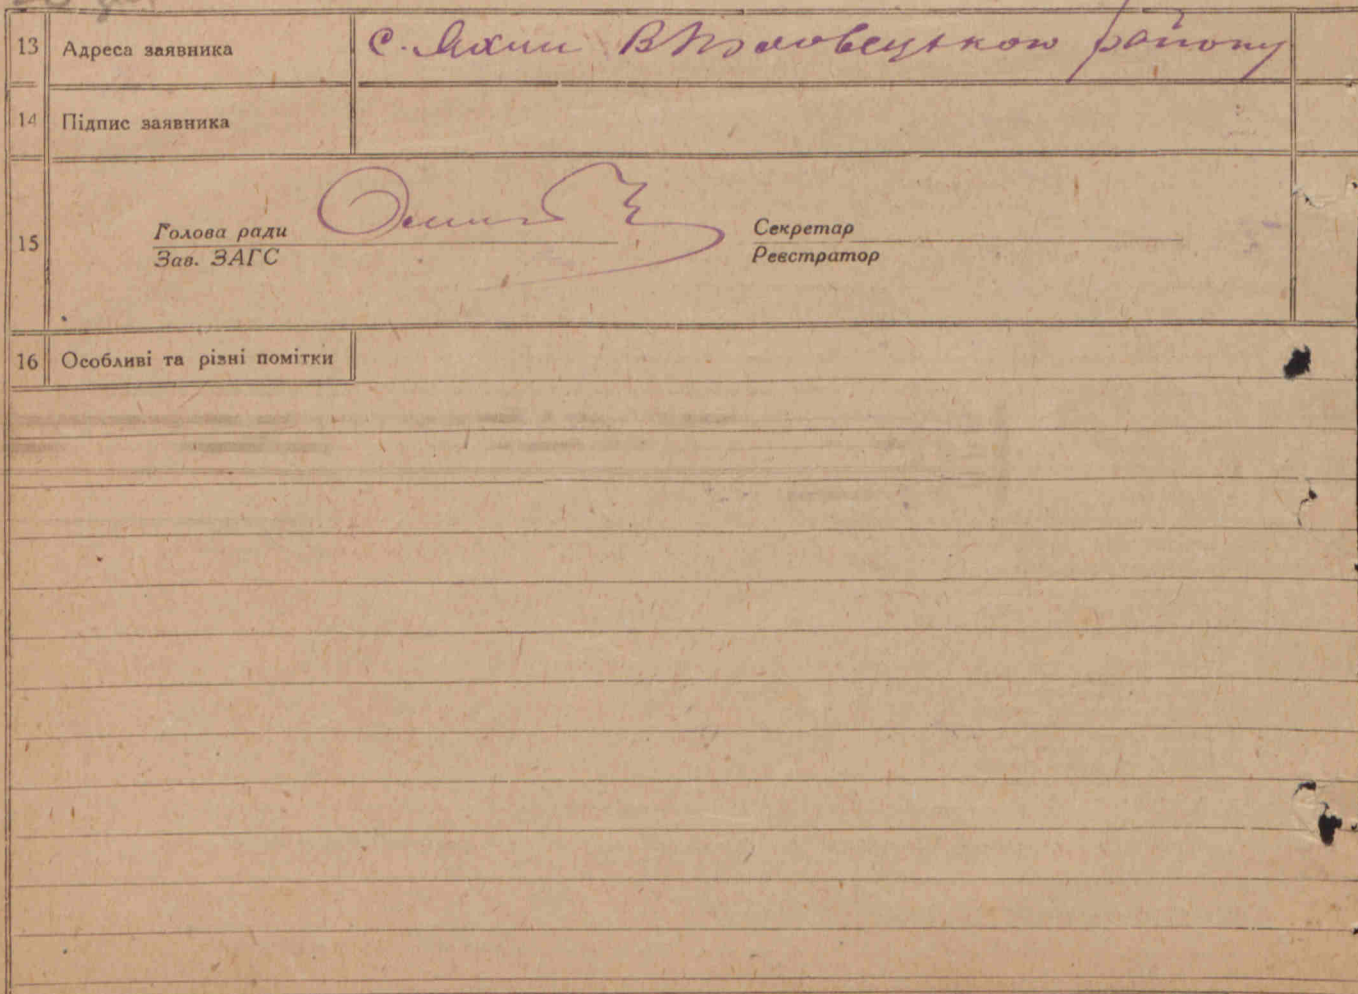 13 Адреса заявника с. Яхни В Половецького району
14 Підпис заявника
15 Голова ради
Зав. ЗАГС
Секретар
Реєстратор
16 Особливі та різні помітки